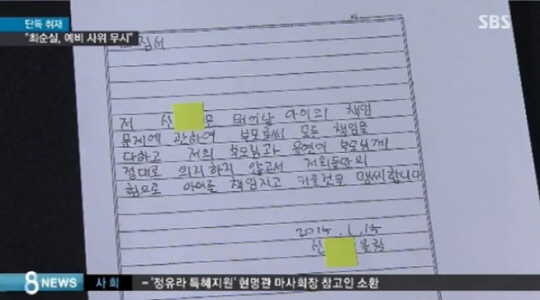 단독 취재
"최순실, 예비 사위 무시"
SBS
저 신
태어날 아이의 책임
문제에 관하여 부모로써 모든 책임을
다하고 저의 부모님과 유연이 부모님께
절대로 의지하지 않고서 저희들만의
힘으로 아이를 책임지고 키울것을 맹세합니다
신 올림
8 NEWS
사 회
- '정유라 특혜지원' 현명관 마사회장 참고인 소환